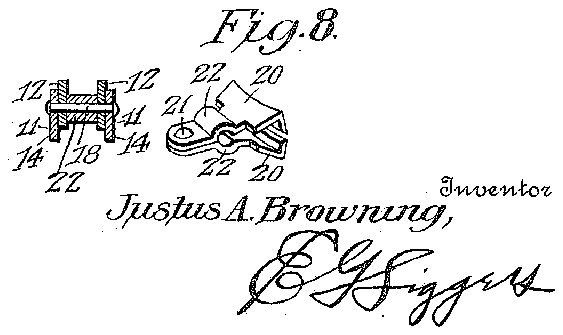 Fig. 8.
12 12 22 20
21
11 11
14 18 14 22
22 20
Inventor
Justus A. Browning,
E G Siggers